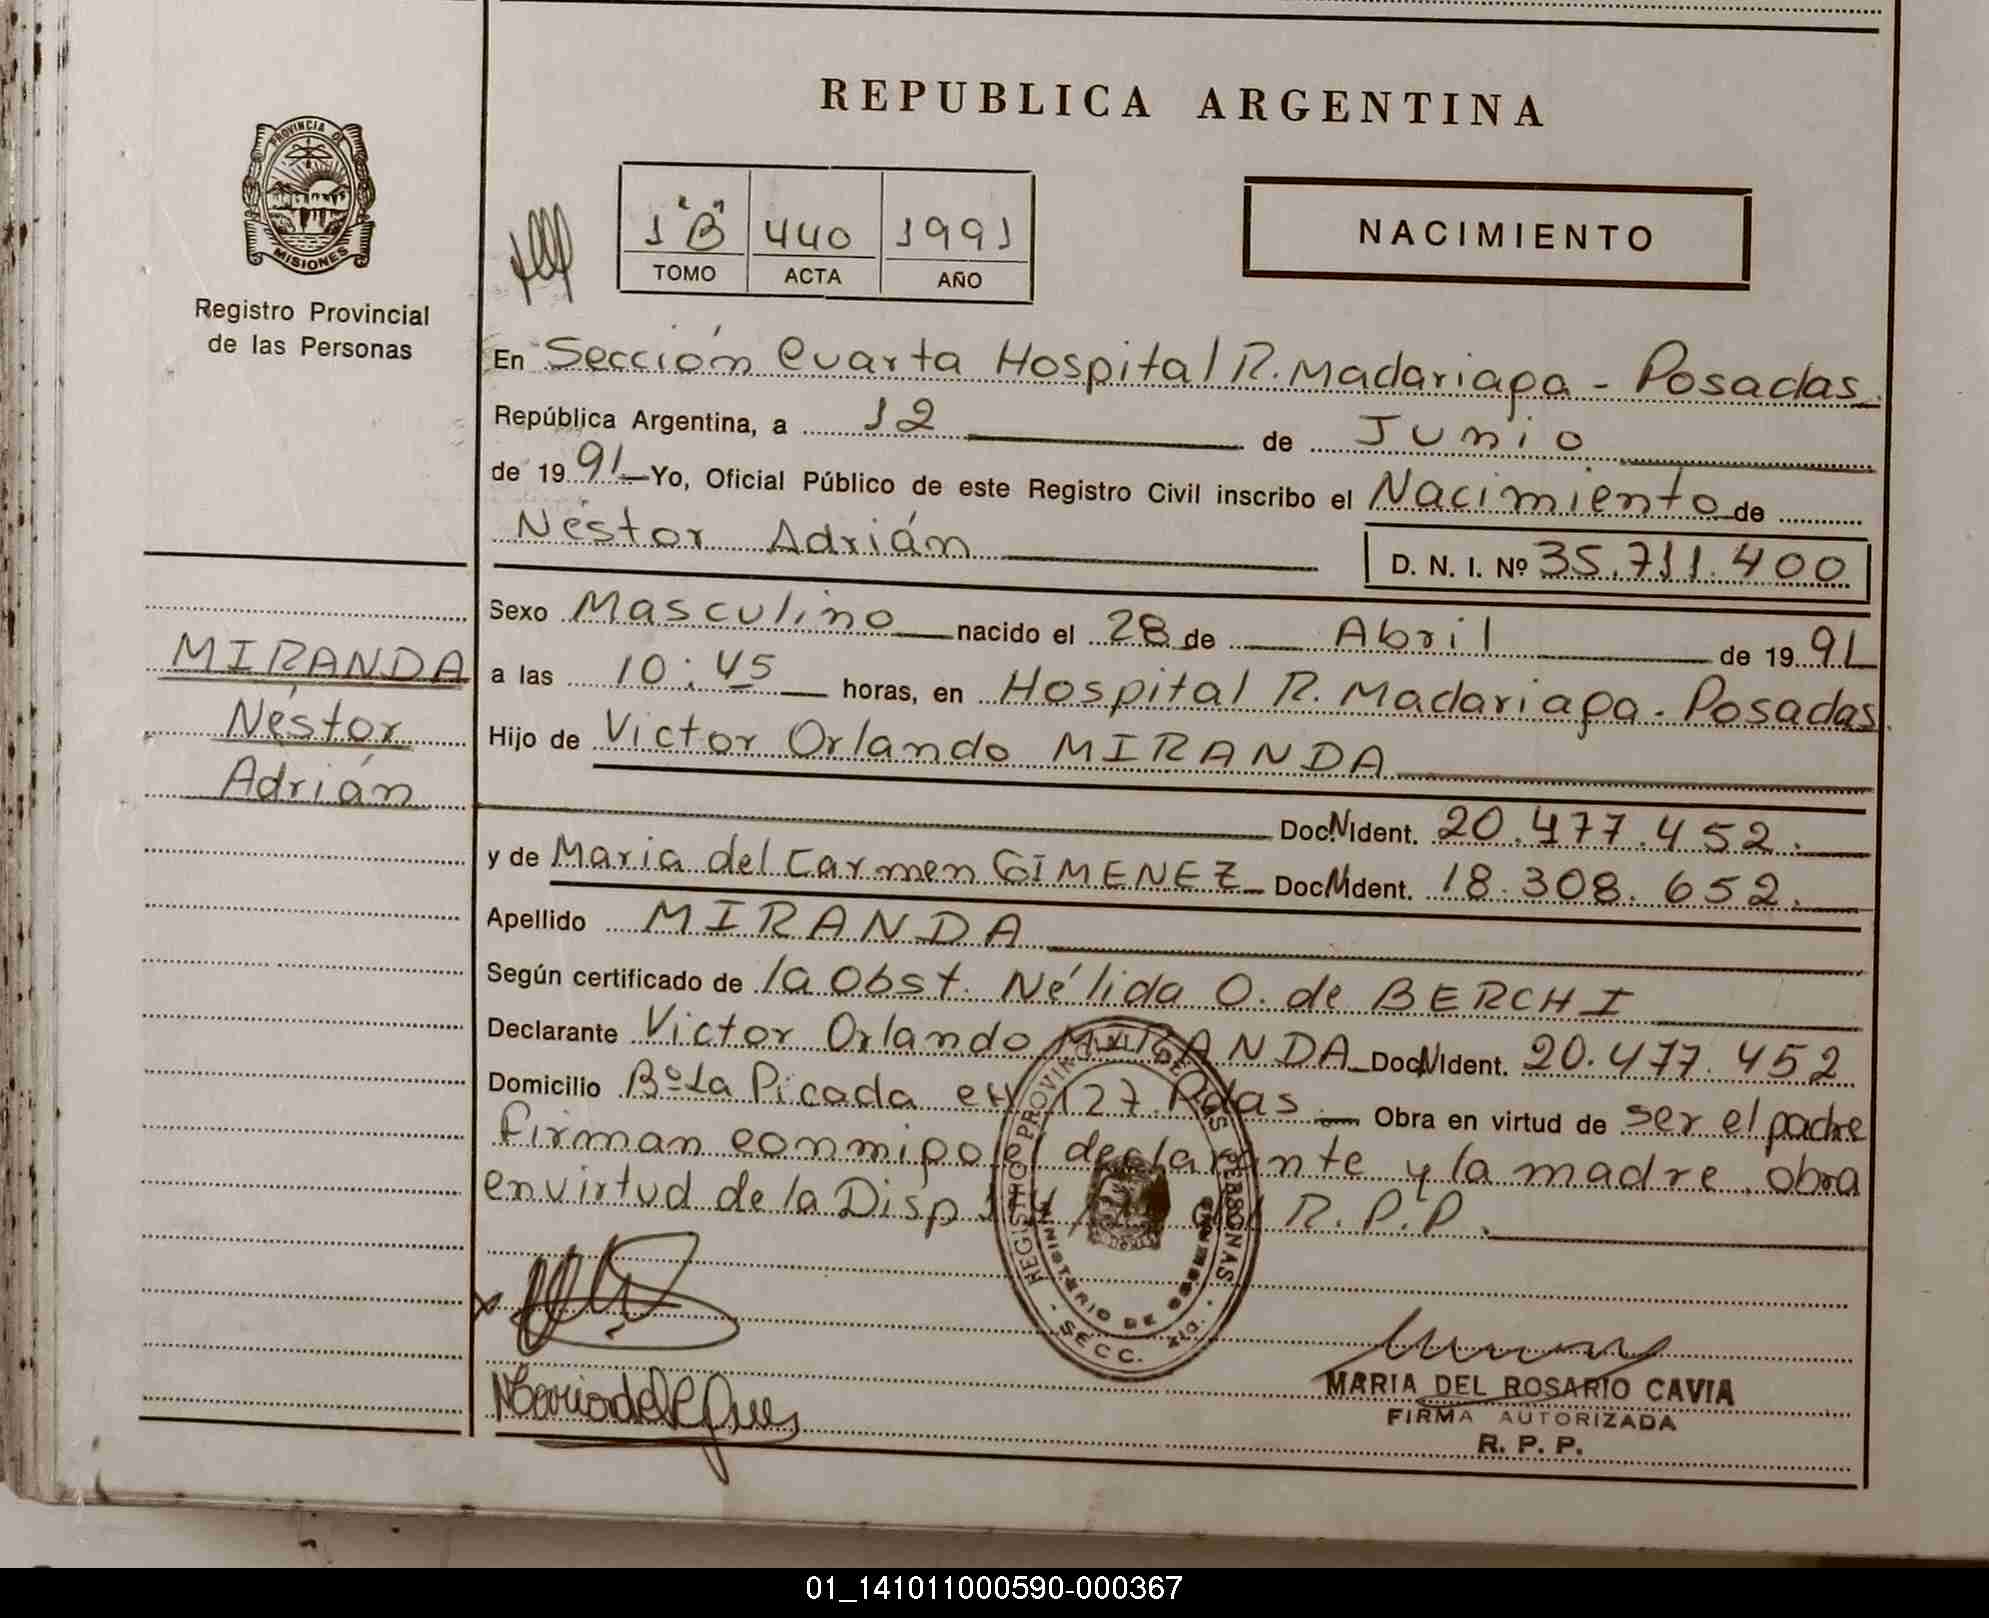 REPUBLICA ARGENTINA
PROVINCIA DE
MISIONES
Registro Provincial
de las Personas
1 "B" 440 1991
TOMO ACTA AÑO
NACIMIENTO
En Sección Cuarta Hospital R. Madariaga - Posadas
República Argentina, a 12 de Junio
de 1991 Yo, Oficial Público de este Registro Civil inscribo el Nacimiento de
Néstor Adrián
D. N. I. Nº 35.711.400
Sexo Masculino nacido el 28 de Abril de 1991
MIRANDA
Néstor
Adrián
a las 10:45 horas, en Hospital R. Madariaga - Posadas
Hijo de Victor Orlando MIRANDA
Doc.N.Ident. 20.477.452.
y de Maria del Carmen GIMENEZ Doc.N.Ident. 18.308.652.
Apellido MIRANDA
Según certificado de la Obst. Nélida O. de BERCHI
Declarante Victor Orlando MIRANDA Doc.N.Ident. 20.477.452
Domicilio Bº La Picada 127 Pdas. Obra en virtud de ser el padre
firman conmigo el declarante y la madre obra
en virtud de la Disp R.P.P.
REGISTRO PROVINCIAL DE LAS PERSONAS
MINISTERIO DE GOBIERNO
SECC. 4ta.
MARIA DEL ROSARIO CAVIA
FIRMA AUTORIZADA
R. P. P.
01_141011000590-000367